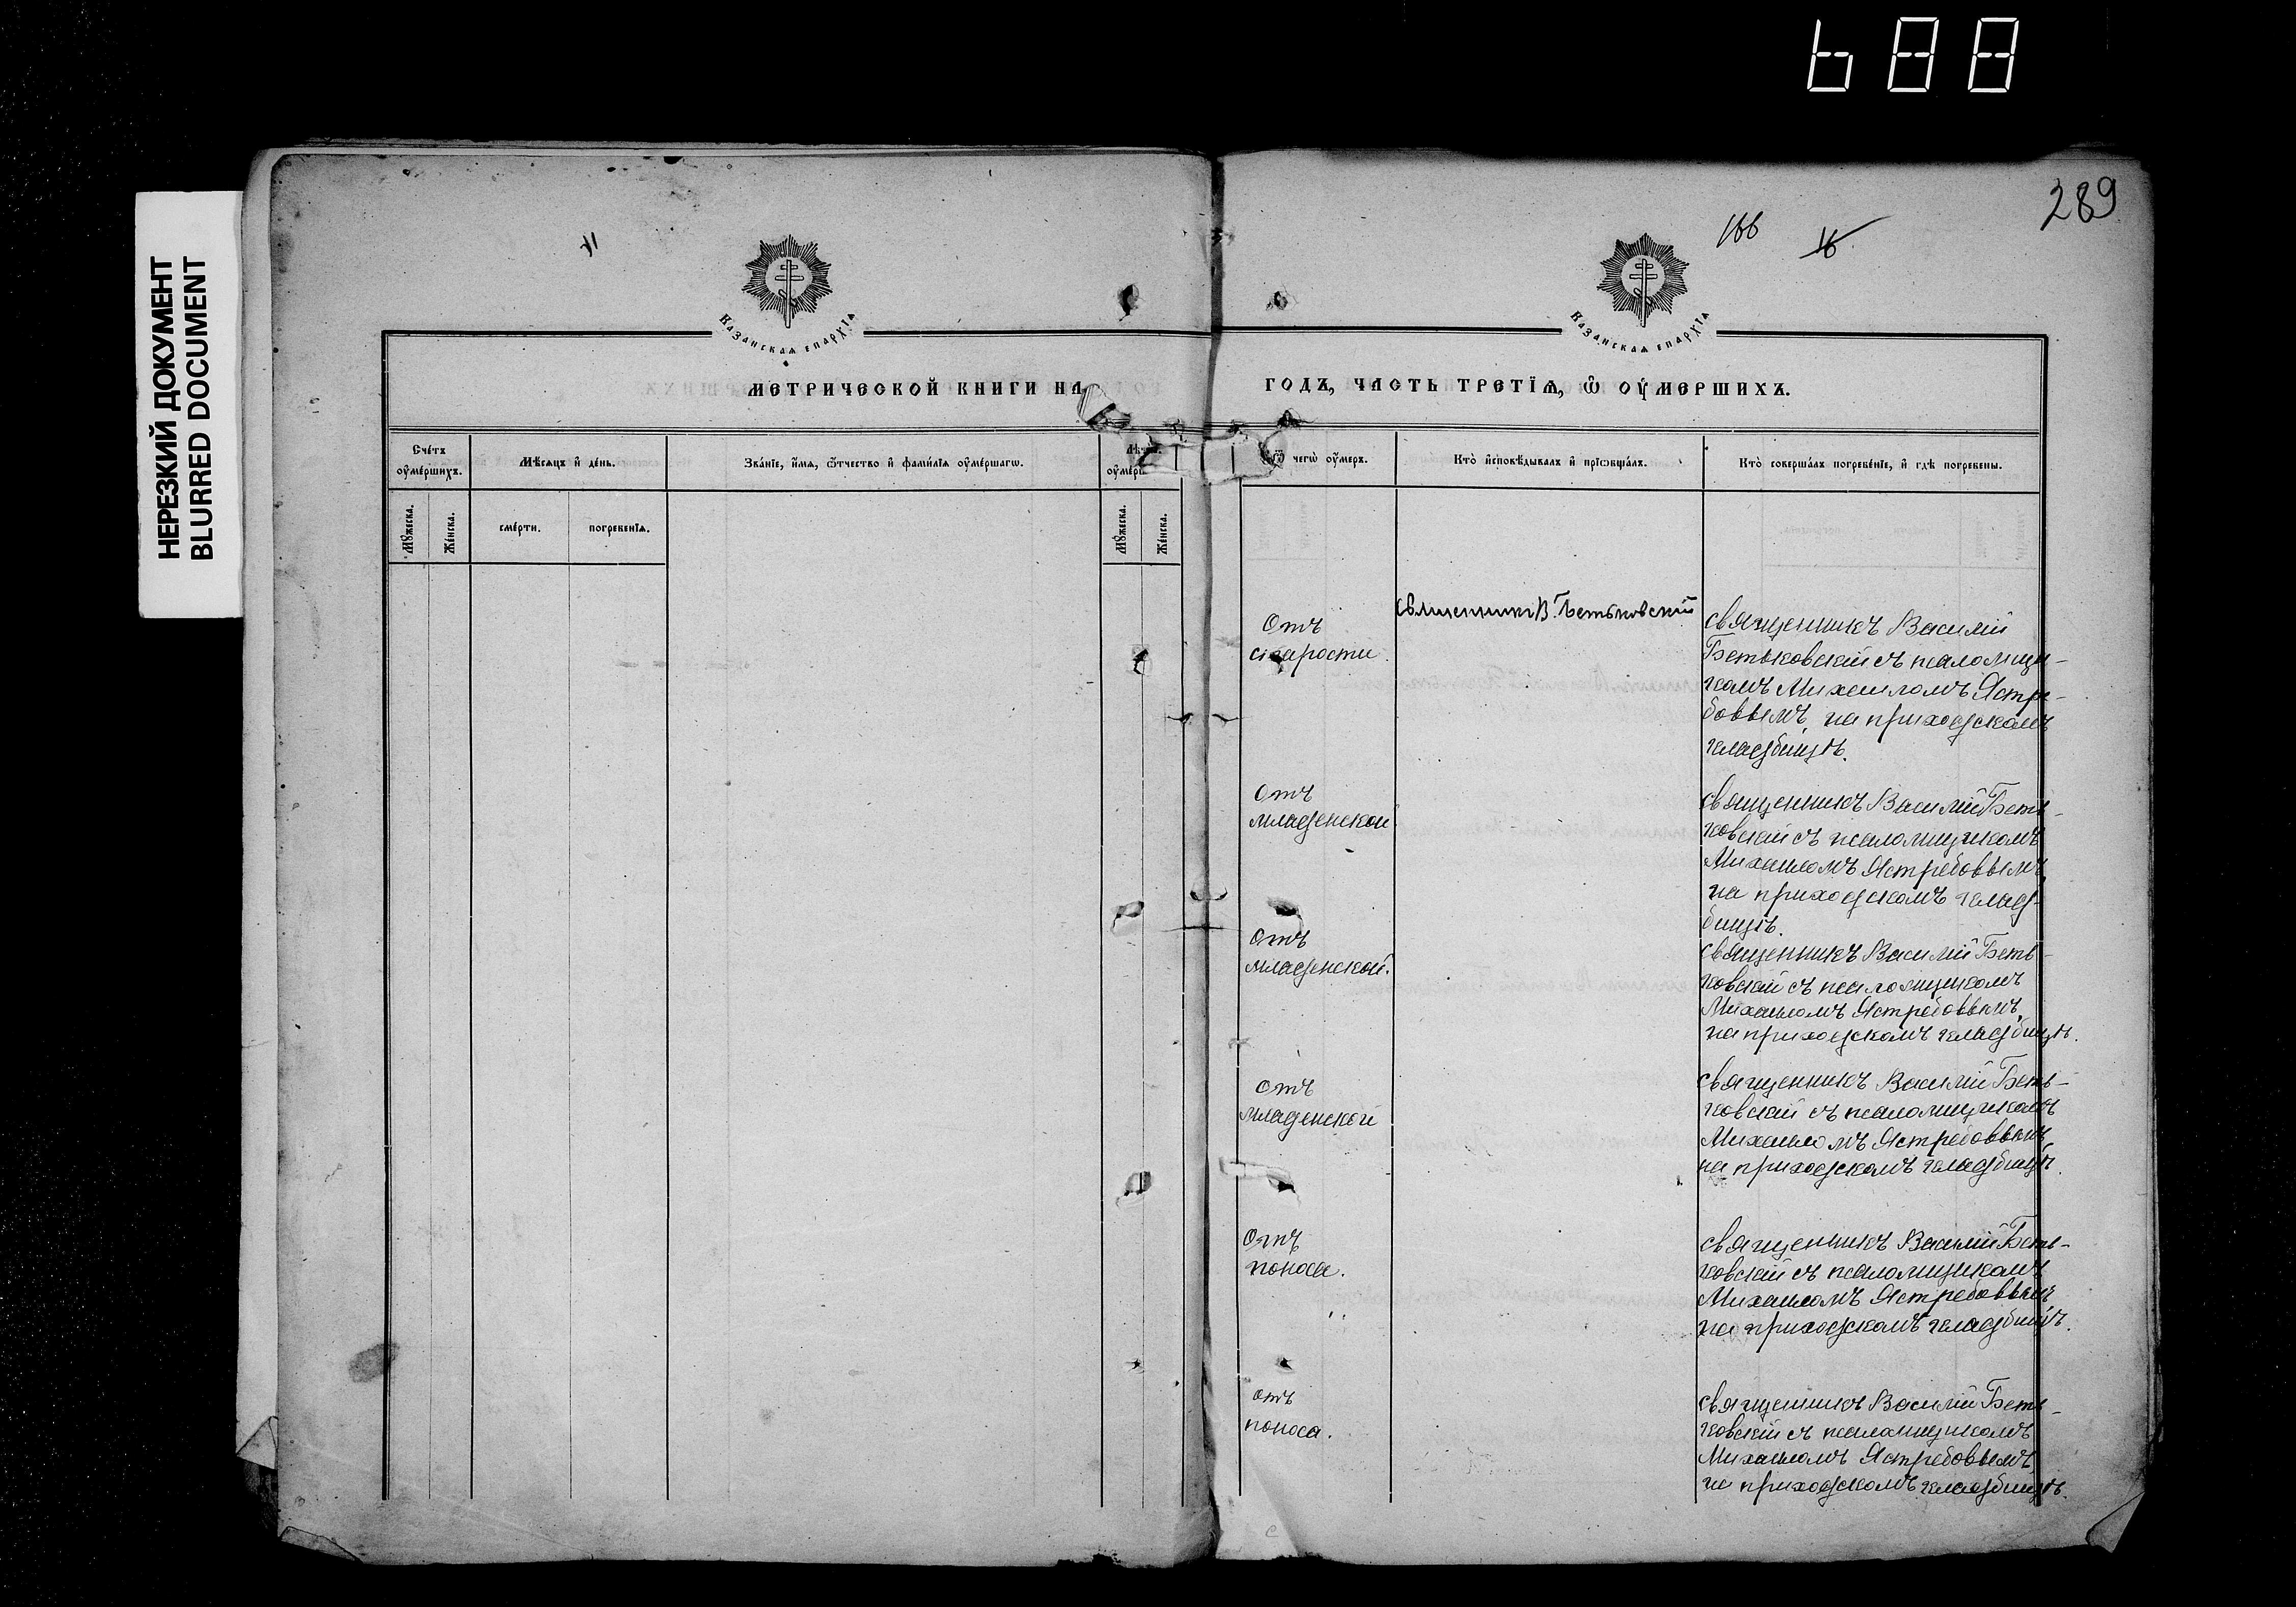 688
НЕРЕЗКИЙ ДОКУМЕНТ
BLURRED DOCUMENT
289
166 16
Казанская епархїѧ
Казанская епархїѧ
МЕТРИЧЕСКОЙ КНИГИ НА
ГОДЪ, ЧАСТЬ ТРЕТЇѦ, Ѿ ОУМЕРШИХЪ.
Счетъ оумершихъ.
Мѣсѧцъ и день.
Званїе, имѧ, ѿчество и фамилїѧ оумершагѡ.
Лѣта оумерш
Ѿ чегѡ оумеръ.
Кто исповѣдывалъ и прїобщалъ.
Кто совершалъ погребенїе, и гдѣ погребены.
Мꙋжеска.
Женска.
смерти.
погребенїѧ.
Мꙋжеска.
Женска.
Отъ
старости.
священникъ В. Бетьковский
священникъ Василій
Бетьковскій съ псаломщи-
комъ Михаиломъ Ястре-
бовымъ на приходскомъ
кладбищѣ.
Отъ
младенской
священникъ Василій Беть-
ковскій съ псаломщикомъ
Михаиломъ Ястребовымъ,
на приходскомъ клад-
бищѣ.
Отъ
младенской.
священникъ Василій Беть-
ковскій съ псаломщикомъ
Михаиломъ Ястребовымъ,
на приходскомъ кладбищѣ.
Отъ
младенской
священникъ Василій Беть-
ковскій съ псаломщикомъ
Михаиломъ Ястребовымъ,
на приходскомъ кладбищѣ.
Отъ
поноса.
священникъ Василій Беть-
ковскій съ псаломщикомъ
Михаиломъ Ястребовымъ
на приходскомъ кладбищѣ.
отъ
поноса.
священникъ Василій Беть-
ковскій съ псаломщикомъ
Михаиломъ Ястребовымъ,
на приходскомъ кладбищѣ.